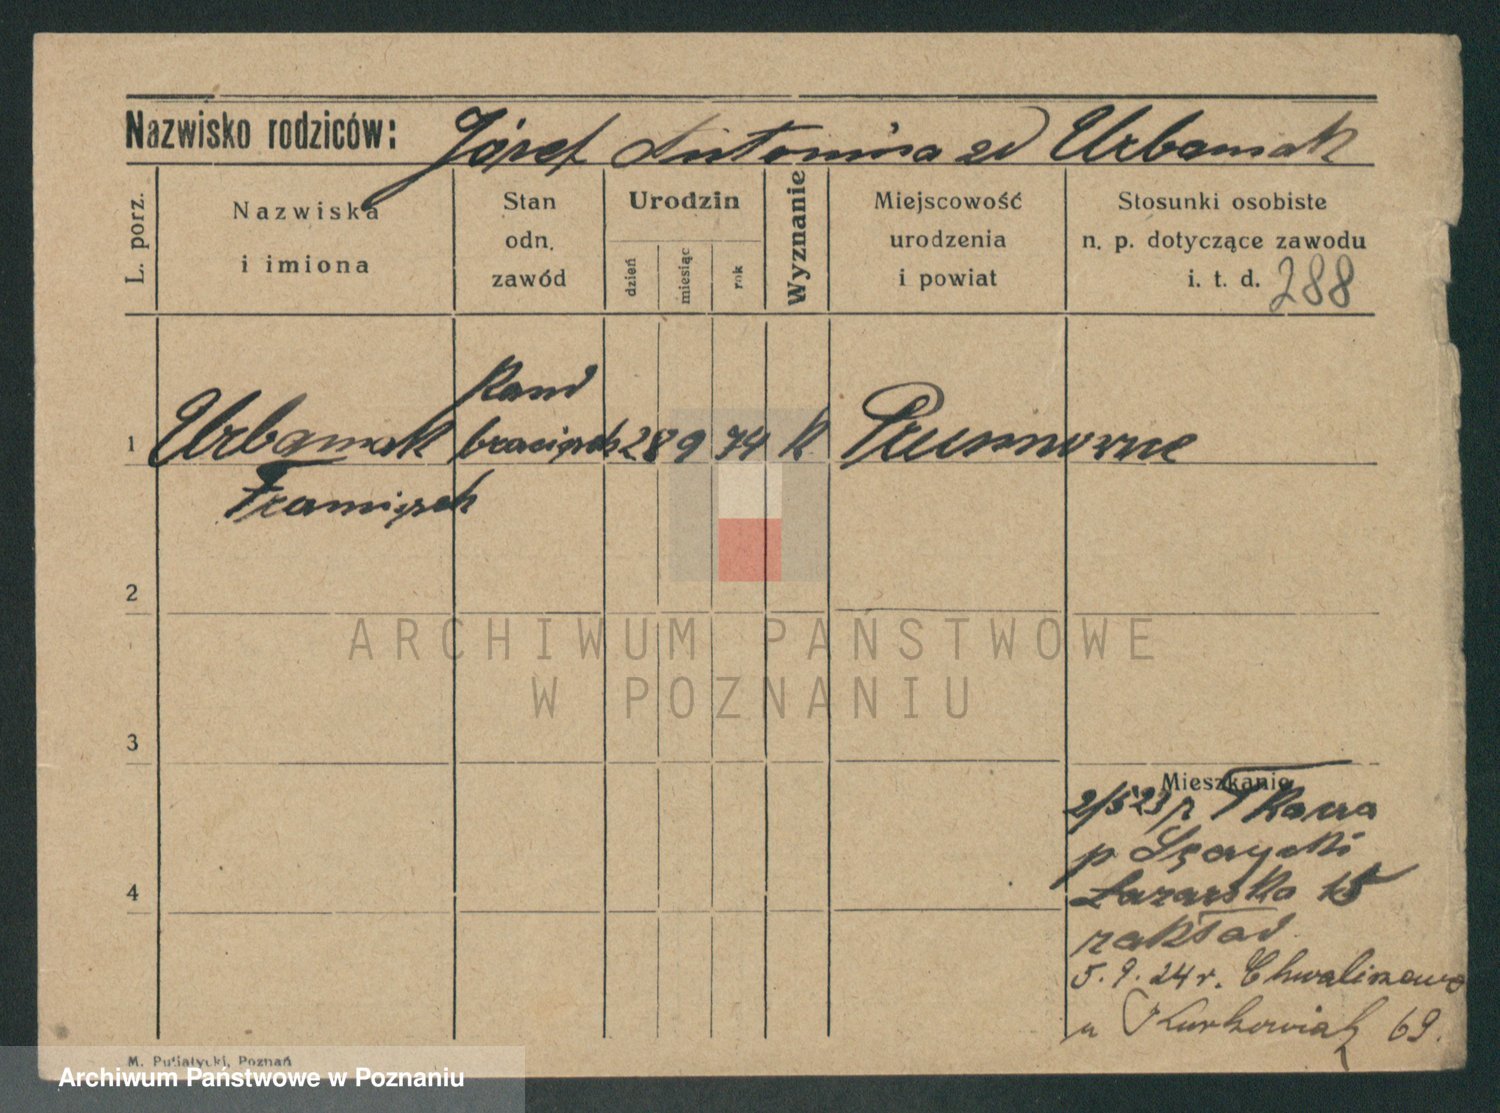 Nazwisko rodziców: Józef Antonina zd Urbaniak
L. porz.
Nazwiska
i imiona
Stan
odn.
zawód
Urodzin
dzień
miesiąc
rok
Wyznanie
Miejscowość
urodzenia
i powiat
Stosunki osobiste
n. p. dotyczące zawodu
i. t. d. 288
1 Urbaniak 28 9 74 k
Franciszek
2
ARCHIWUM PAŃSTWOWE
W POZNANIU
3
4
Mieszkanie
2/5 23 z Tkacza
p
Łazarska 15
zakład
5. 9. 24 r. Chwaliszewo
u Kurkowiak 69.
M. Putiatycki, Poznań
Archiwum Państwowe w Poznaniu